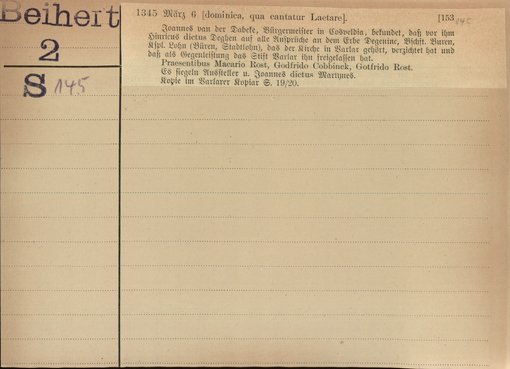 Beiheft
2
S 145
1345 März 6 [dominica, qua cantatur Laetare]. [153
145
Joannes van der Dabeke, Bürgermeister in Cosveldia, bekundet, daß vor ihm
Hinricus dictus Deghen auf alle Ansprüche an dem Erbe Degeninc, Bschft. Buren,
Kspl. Lohn (Büren, Stadtlohn), das der Kirche in Varlar gehört, verzichtet hat und
daß als Gegenleistung das Stift Varlar ihn freigelassen hat.
Praesentibus Macario Rost, Godfrido Cobbinck, Gotfrido Rost.
Es siegeln Aussteller u. Joannes dictus Martynes.
Kopie im Varlarer Kopiar S. 19/20.